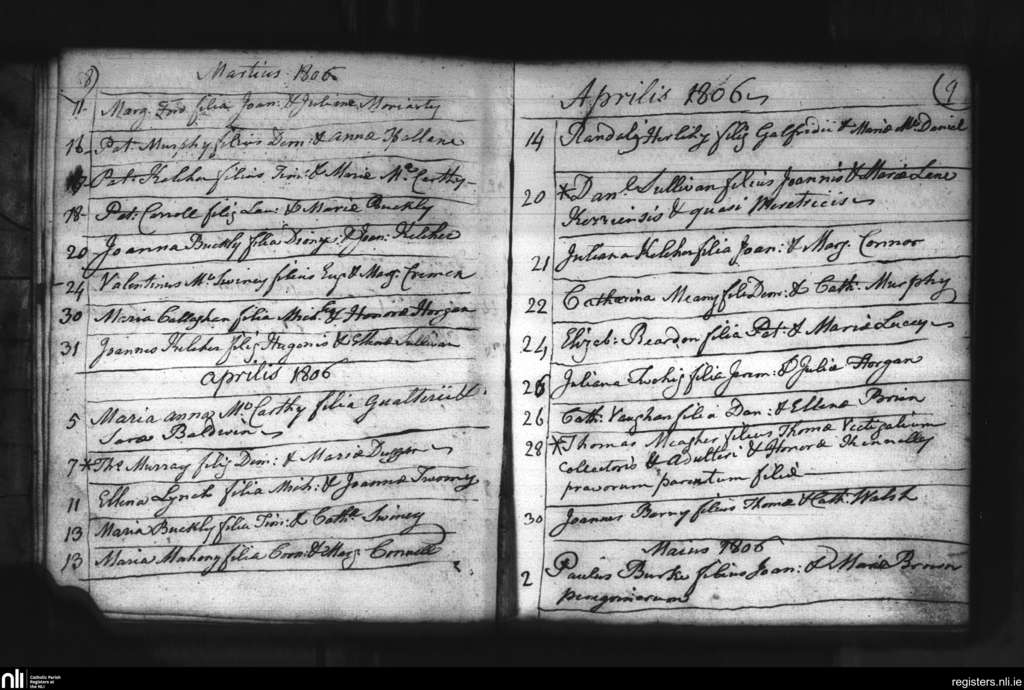 8)
Martius 1806
11 Marg. filia Joan: & Julianæ Moriarty
16 Pat: Murphy filius Dem: & Anna Kellane
17 Pat: Kelcher filius Tim: & Mariæ Mc.Carthy
18 Pat: Carroll filiq Lau: & Mariæ Buckly
20 Joanna Buckly filia Dionys: & Joan: Kelcher
24 Valentinus Mc.Swiney filius Eug: & Marg: Cremen
30 Maria Callaghan filia Mich: & Honoræ Horgan
31 Joannes Kelcher filiq Hugonis & Ellenæ Sullivan
Aprilis 1806
5 Maria Anna Mc.Carthy filia Gualterii &
Saræ Baldwin
7 * Ths. Murray filiq Dem: & Mariæ Duggan
11 Ellena Lynch filia Mich: & Joannæ Twomy
13 Maria Buckly filia Tim: & Cathæ Swiney
13 Maria Mahony filia Corn: & Marg: Connell
(9
Aprilis 1806
14 Herlihy filiq Galfridii & Mariæ Mc.Daniel
20 * Danl. Sullivan filius Joannis & Mariæ Lane
Kerriensis & quasi Meretricis
21 Juliana Kelcher filia Joan: & Marg: Connor
22 Catharina Meany filia Dem: & Cath: Murphy
24 Elizab: Reardon filia Pat: & Mariæ Lucey
26 Juliana Twohig filia Jerem: & Julia Horgan
26 Cath: Vaughan filia Dan: & Ellenæ Brien
28 * Thomas Meagher filius Thomæ Vectigalium
Collectoris & Adulteri & Honoræ Kennelley
pravorum parentum filii
30 Joannes Barry filius Thomæ & Cath: Walsh
Maius 1806
2 Paulus Burke filius Joan: & Mariæ Brown
peregrinorum
nli
Catholic Parish
Registers at
the NLI
registers.nli.ie